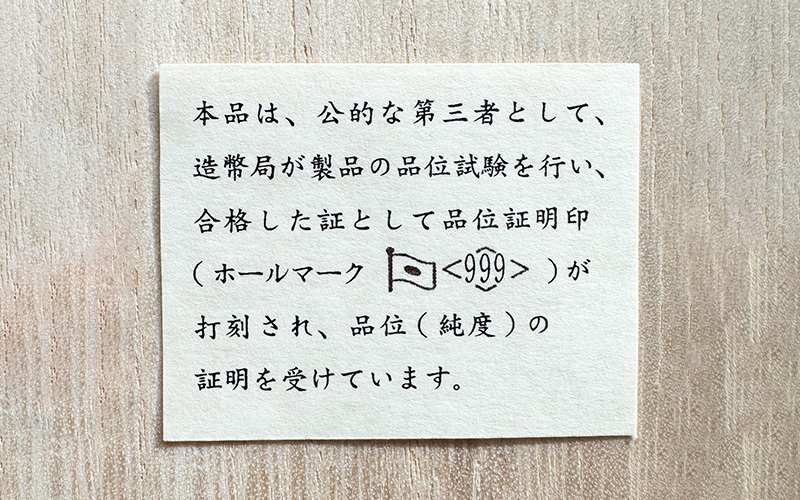 本品は、公的な第三者として、
造幣局が製品の品位試験を行い、
合格した証として品位証明印
(ホールマーク <999> )が
打刻され、品位(純度)の
証明を受けています。